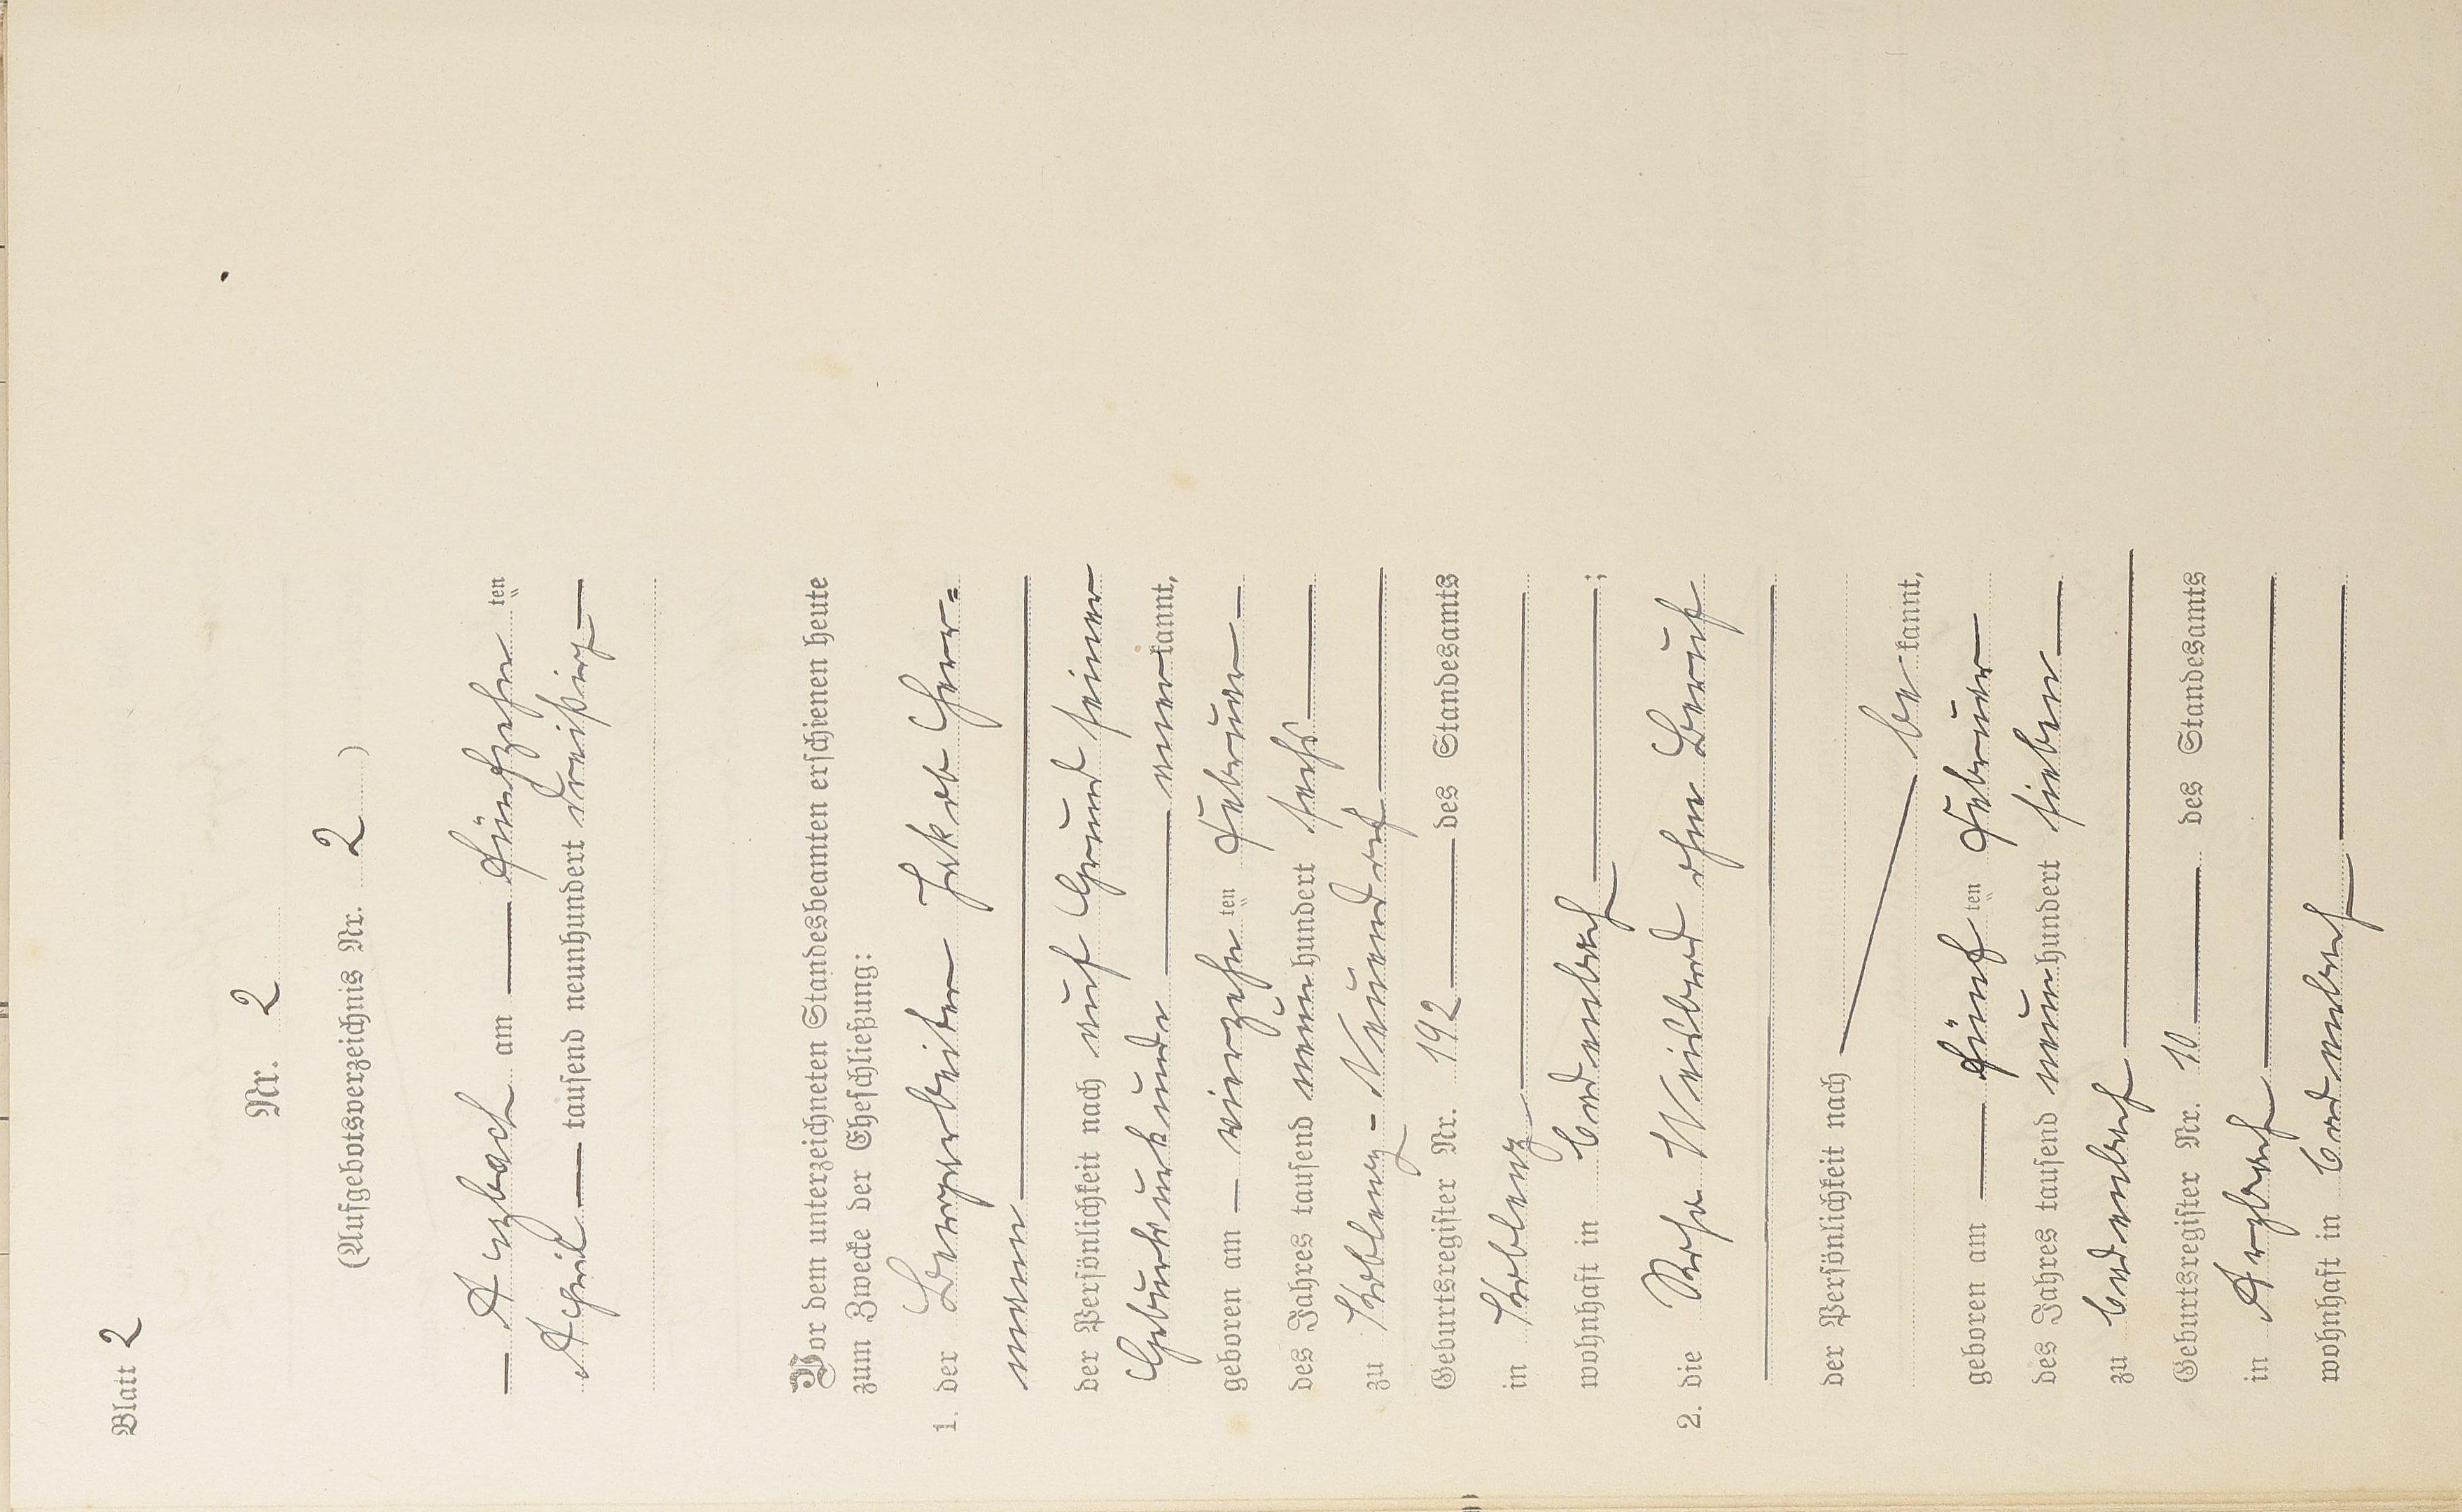 Blatt 2
Nr. 2
(Aufgebotsverzeichnis Nr. 2)
Arzbach am — fünfzehnten
April — tausend neunhundert dreißig —
Vor dem unterzeichneten Standesbeamten erschienen heute
zum Zwecke der Eheschließung:
1. der Bergarbeiter Jakob Herr-
mann
der Persönlichkeit nach auf Grund seiner
Geburtsurkunde — anerkannt,
geboren am — vierzehnten Februar —
des Jahres tausend neunhundert sechs —
zu Koblenz-Neuendorf —
Geburtsregister Nr. 192 — des Standesamts
in Koblenz —
wohnhaft in Cadenbach — ;
2. die Neibad ohne Beruf
der Persönlichkeit nach — bekannt,
geboren am — fünften Februar
des Jahres tausend neunhundert sieben —
zu Cadenbach —
Geburtsregister Nr. 10 — des Standesamts
in Arzbach —
wohnhaft in Cadenbach —